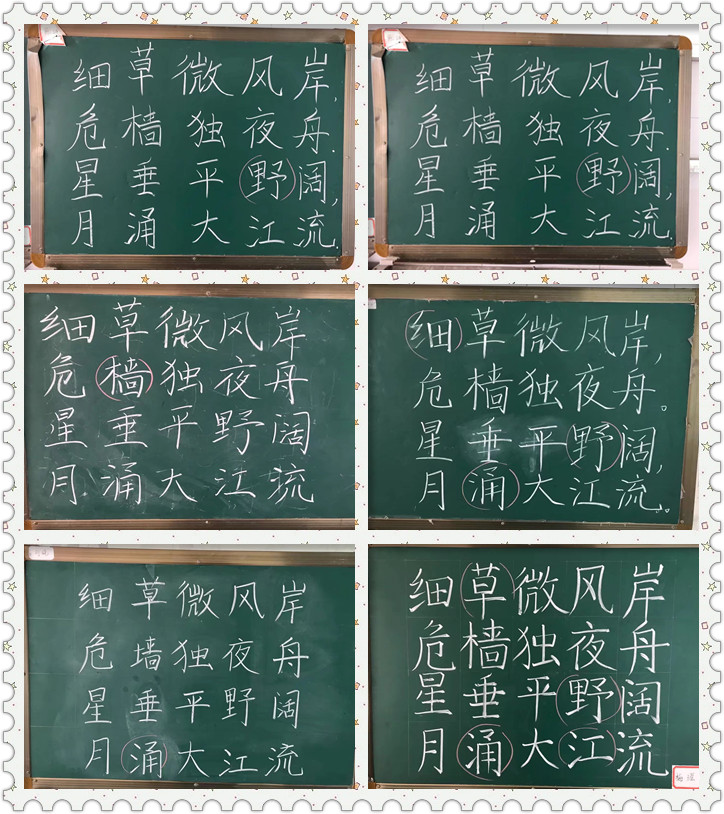 细草微风岸,
危樯独夜舟.
星垂平野阔,
月涌大江流
细草微风岸,
危樯独夜舟.
星垂平野阔,
月涌大江流
细草微风岸
危樯独夜舟
星垂平野阔
月涌大江流
细草微风岸,
危樯独夜舟。
星垂平野阔,
月涌大江流。
细草微风岸
危墙独夜舟
星垂平野阔
月涌大江流
细草微风岸
危樯独夜舟
星垂平野阔
月涌大江流